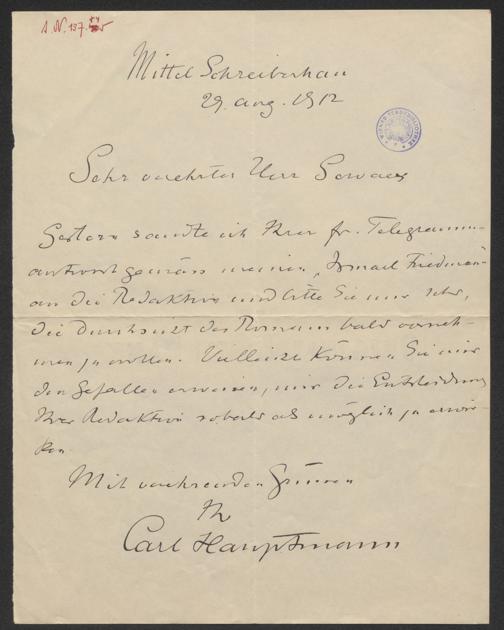 Mittel Schreiberhau
29. Aug. 1912
Sehr verehrter Herr Servaes
Gestern sandte ich Ihrer fr. Telegramm-
antwort gemäss meinen „Ismael Friedmann“
an die Redaktion und bitte Sie nur sehr,
die Durchsicht des Romans bald vorneh-
men zu wollen. Vielleicht können Sie mir
den Gefallen erweisen, mir die Entscheidung
Ihrer Redaktion sobald als möglich zu erwir-
ken.
Mit verehrenden Grüssen
Ihr
Carl Hauptmann